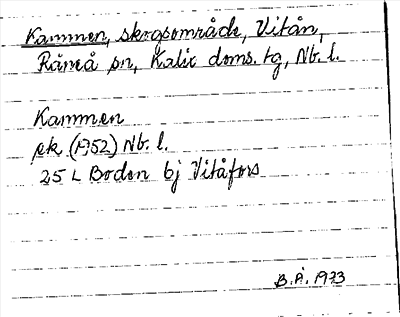 Kammen, skogsområde, Vitån,
Råneå sn, Kalix doms. tg, Nb. l.
Kammen
ek (1952) Nb. l.
25 L Boden bj Vitåfors
B.Å. 1973